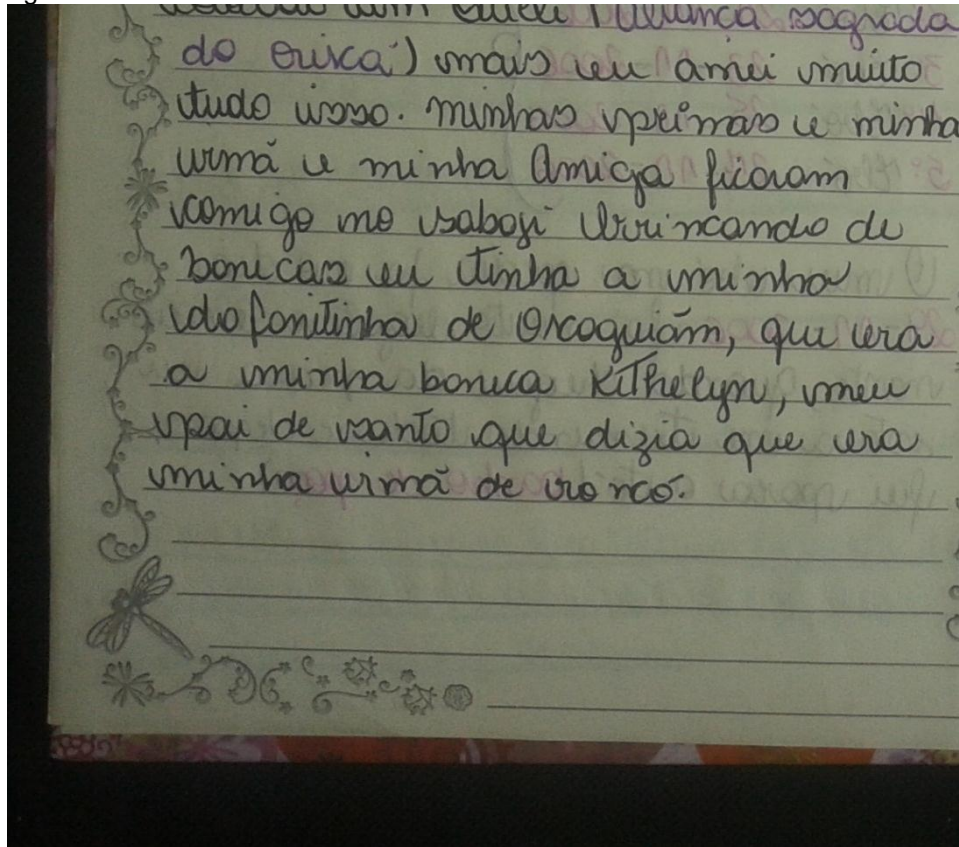 com (aliança sagrada
do orixá) mais eu amei muito
tudo isso. minhas primas e minha
irmã e minha Amiga ficaram
comigo no sabaji brincando de
bonecas eu tinha a minha
dofonitinha de Oxoguiám, que era
a minha boneca KiThelyn, meu
pai de santo que dizia que era
minha irmã de roncó.